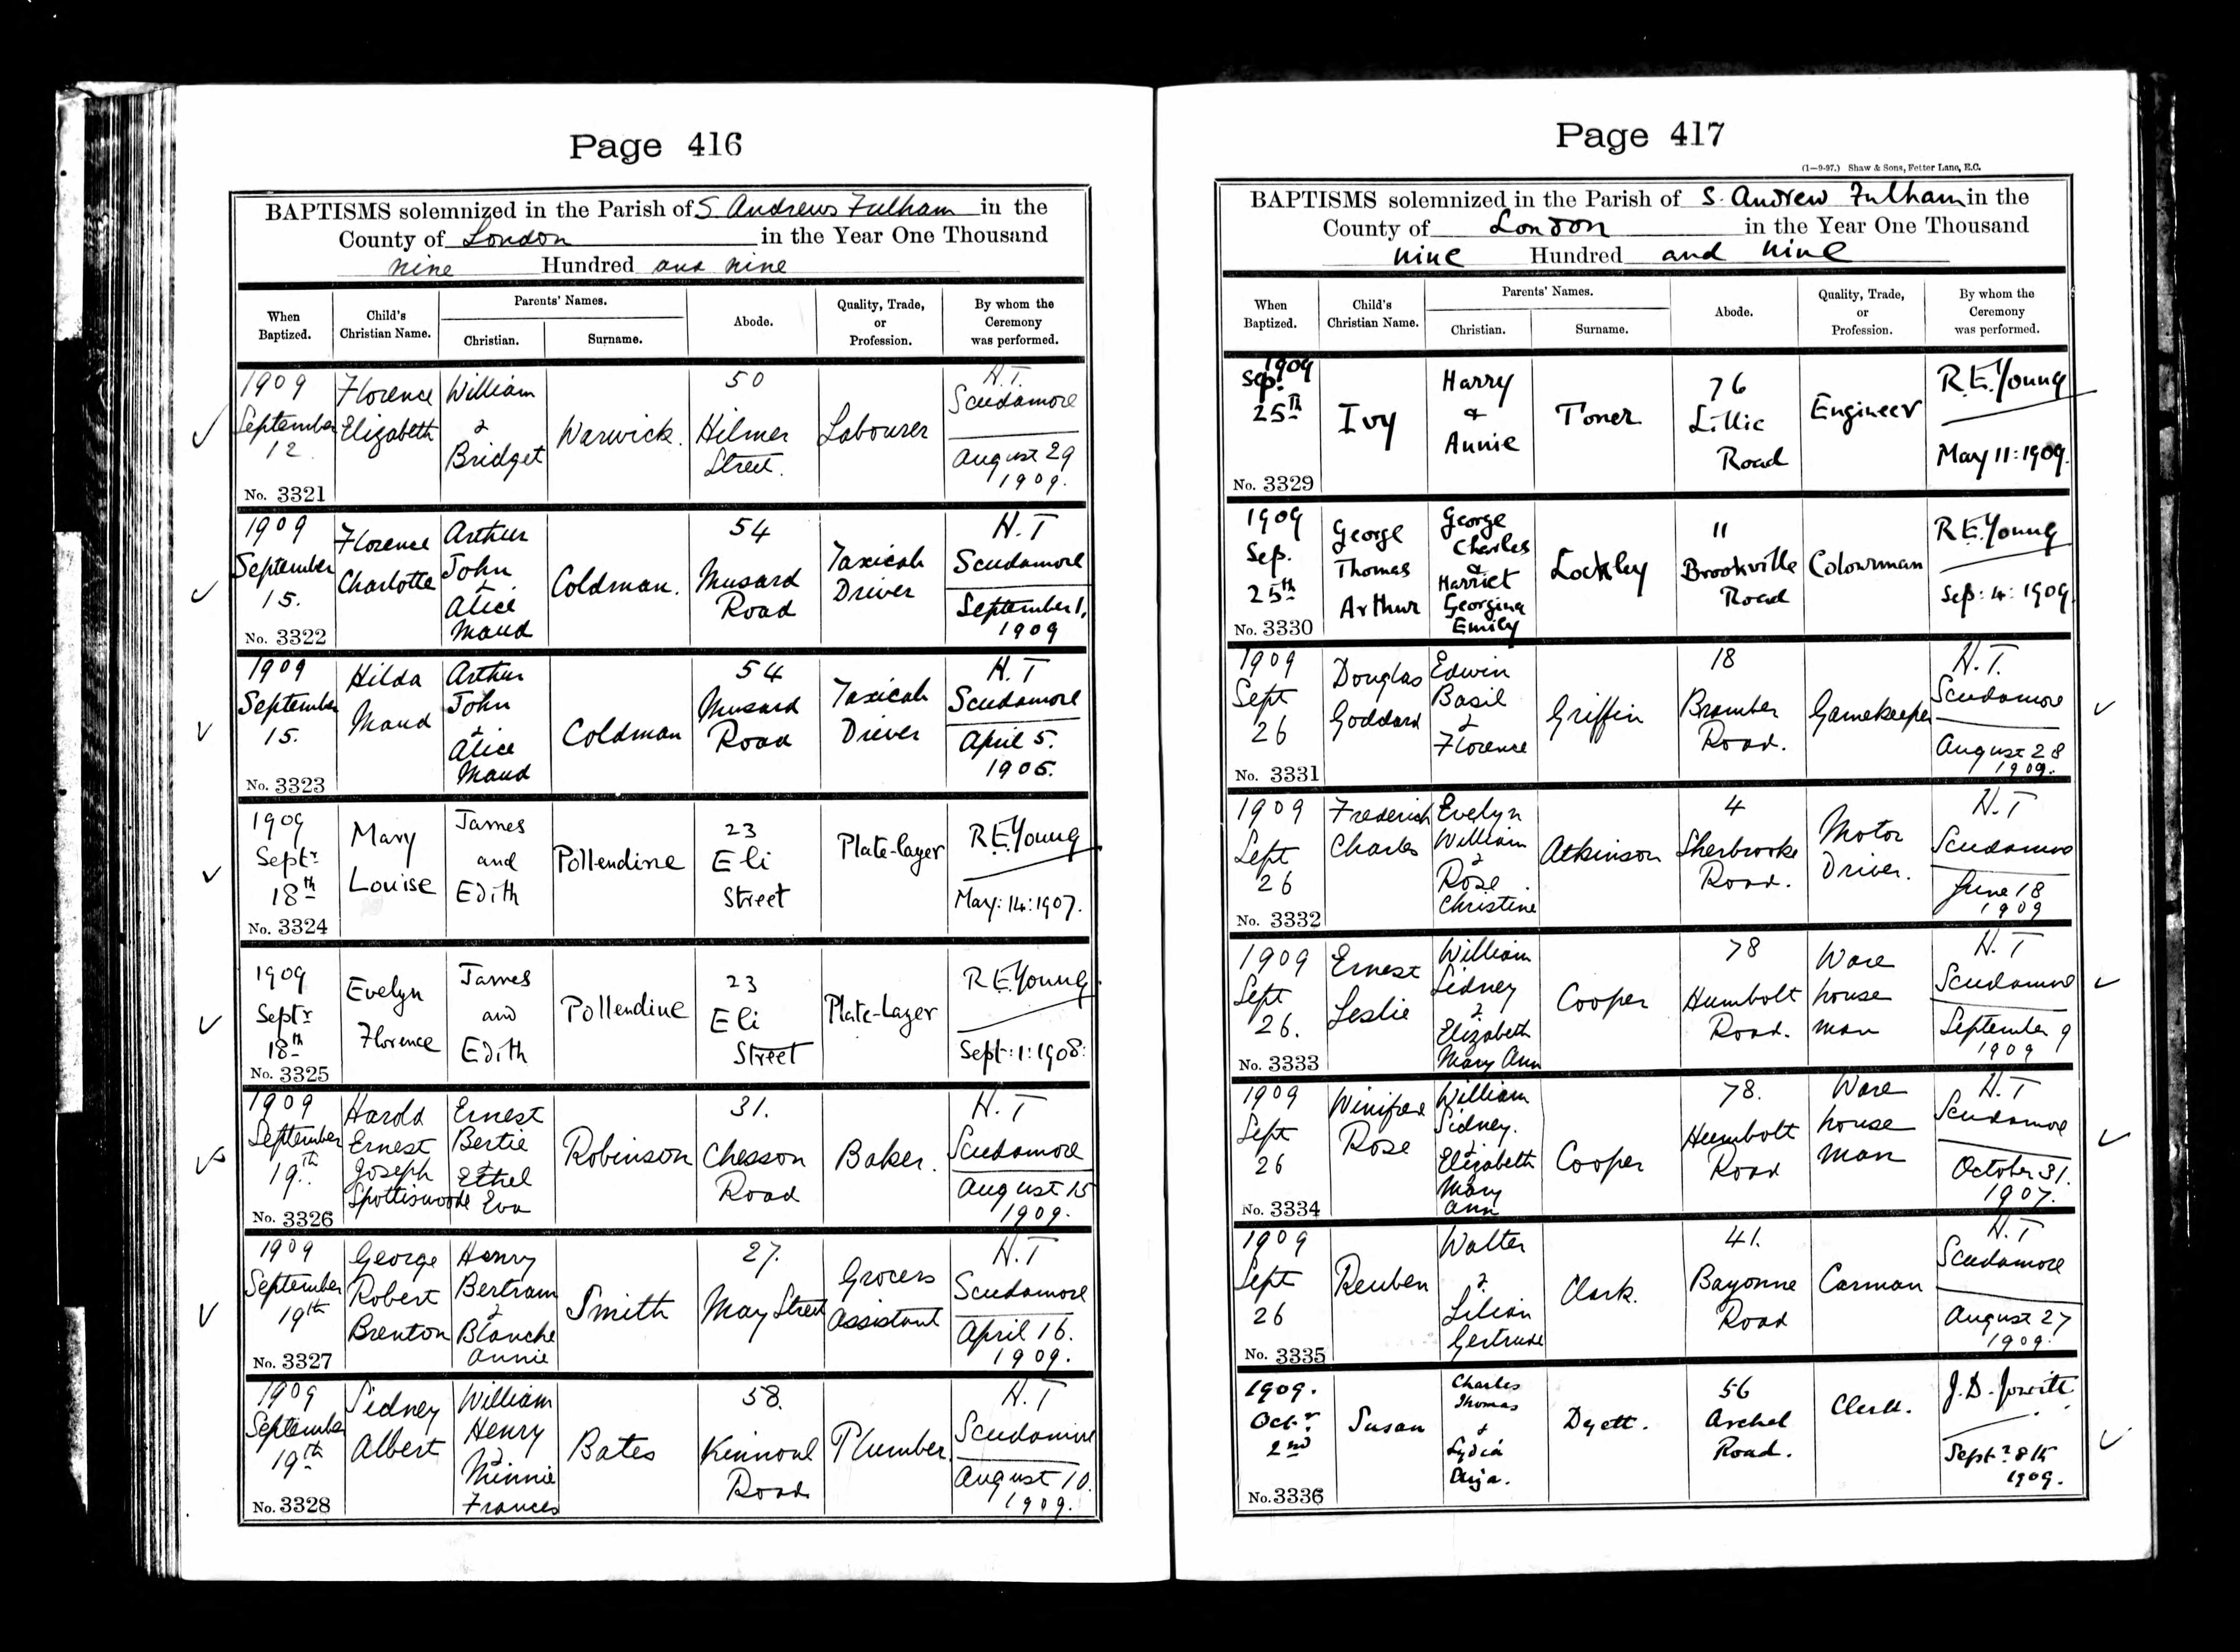 Page 416
BAPTISMS solemnized in the Parish of S Andrews Fulham in the
County of London in the Year One Thousand
nine Hundred and nine
When Baptized.
Child's Christian Name.
Parents' Names.
Christian.
Surname.
Abode.
Quality, Trade, or Profession.
By whom the Ceremony was performed.
1909
September
12
No. 3321
Florence
Elizabeth
William
&
Bridget
Warwick.
50
Hilmer
Street.
Labourer
H.T.
Scudamore
August 29
1909.
1909
September
15.
No. 3322
Florence
Charlotte
Arthur
John
&
Alice
Maud
Coldman.
54
Musard
Road
Taxicab
Driver
H.T
Scudamore
September 1.
1909
1909
September
15.
No. 3323
Hilda
Maud
Arthur
John
&
Alice
Maud
Coldman
54
Musard
Road
Taxicab
Driver
H.T
Scudamore
April 5.
1906.
1909
Septr
18th
No. 3324
Mary
Louise
James
and
Edith
Pollendine
23
Eli
Street
Plate-layer
R.E.Young
May: 14: 1907.
1909
Septr
18th
No. 3325
Evelyn
Florence
James
and
Edith
Pollendine
23
Eli
Street
Plate-Layer
R.E.Young
Sept: 1: 1908:
1909
September
19th
No. 3326
Harold
Ernest
Joseph
Spottiswoode
Ernest
Bertie
&
Ethel
Eva
Robinson
31.
Chesson
Road
Baker.
H.T
Scudamore
August 15
1909.
1909
September
19th
No. 3327
George
Robert
Brenton
Henry
Bertram
&
Blanche
Annie
Smith
27.
May Street
Grocers
Assistant
H.T
Scudamore
April 16.
1909.
1909
September
19th
No. 3328
Sidney
Albert
William
Henry
&
Minnie
Frances
Bates
58.
Kinnoul
Road
Plumber.
H.T
Scudamore
August 10.
1909.
Page 417
(1—9-97.) Shaw & Sons, Fetter Lane, E.C.
BAPTISMS solemnized in the Parish of S. Andrew Fulham in the
County of London in the Year One Thousand
nine Hundred and nine
When Baptized.
Child's Christian Name.
Parents' Names.
Christian.
Surname.
Abode.
Quality, Trade, or Profession.
By whom the Ceremony was performed.
1909
Sep.
25th
No. 3329
Ivy
Harry
&
Annie
Toner
76
Lillie
Road
Engineer
R.E.Young
May 11: 1909.
1909
Sep.
25th
No. 3330
George
Thomas
Arthur
George
Charles
&
Harriet
Georgina
Emily
Lockley
11
Brookville
Road
Colourman
R.E.Young
Sep: 4: 1909.
1909
Sept
26
No. 3331
Douglas
Goddard
Edwin
Basil
&
Florence
Griffin
18
Bramber
Road.
Gamekeeper
H.T.
Scudamore
August 28
1909.
1909
Sept
26
No. 3332
Frederick
Charles
Evelyn
William
&
Rose
Christine
Atkinson
4
Sherbrooke
Road.
Motor
Driver.
H.T
Scudamore
June 18
1909
1909
Sept
26.
No. 3333
Ernest
Leslie
William
Sidney
&
Elizabeth
Mary Ann
Cooper
78
Humbolt
Road.
Ware
house
man
H.T
Scudamore
September 9
1909
1909
Sept
26
No. 3334
Winifred
Rose
William
Sidney.
&
Elizabeth
Mary
Ann
Cooper
78.
Humbolt
Road
Ware
house
man
H.T
Scudamore
October 31.
1907.
1909
Sept
26
No. 3335
Reuben
Walter
&
Lilian
Gertrude
Clark.
41.
Bayonne
Road
Carman
H.T
Scudamore
August 27
1909.
1909.
Octr
2nd
No. 3336
Susan
Charles
Thomas
&
Lydia
Dyett.
56
Archel
Road.
Clerk.
J.D. Jowitt
Septr 8th
1909.